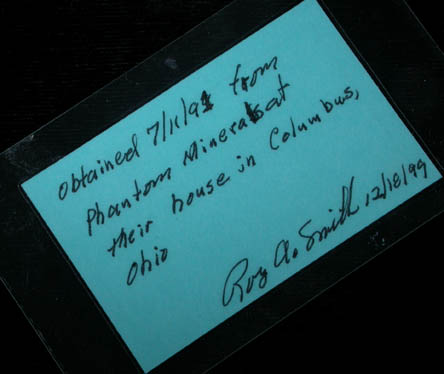 Obtained 7/11/91 from
Phantom Minerals at
their house in Columbus,
Ohio
Roy A. Smith 12/18/99